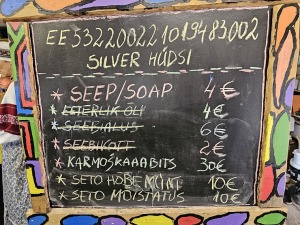 EE532200221019483002
SILVER HÜDSI
* SEEP/SOAP 4€
* EETERLIK ÕLI 4€
* SEEBIALUS 6€
* SEEBIKOTT 2€
* KARMOSKAAABITS 30€
* SETO HÕBEMÜNT 10€
* SETO MÕISTATUS 10€